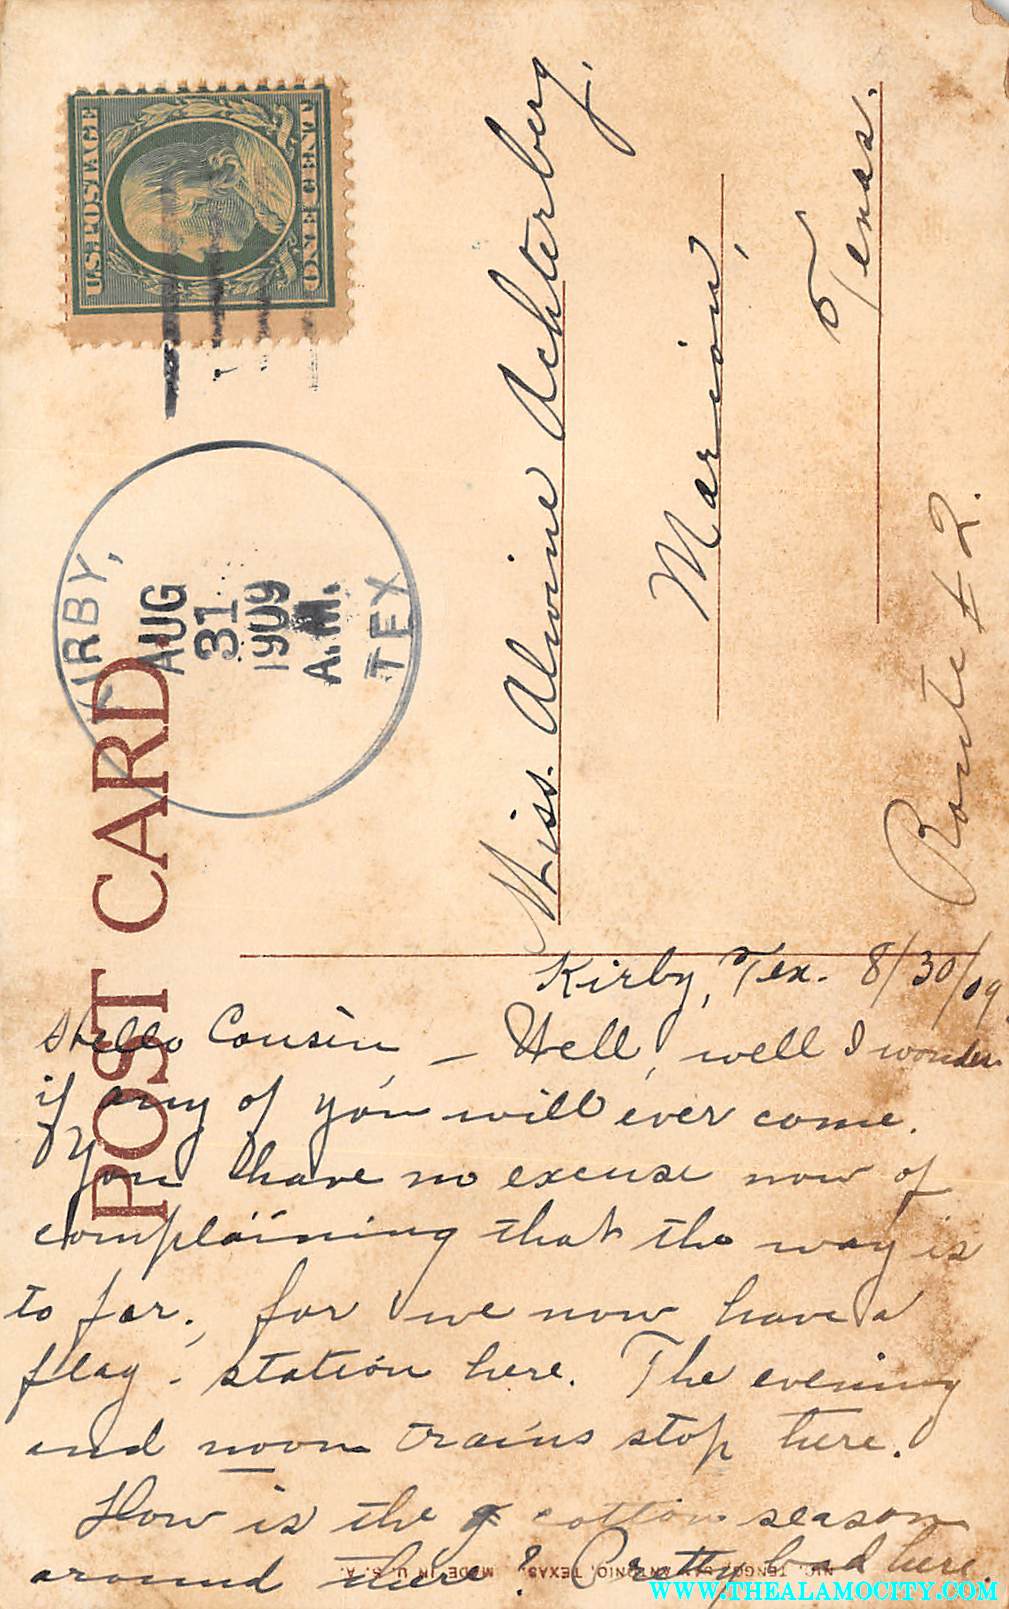 U.S. POSTAGE
ONE CENT
KIRBY,
AUG
31
1909
A.M.
TEX
POST CARD
Miss. Alvine Achterberg,
Marion,
Texas.
Route #2.
Kirby, Tex. 8/30/09
Hello Cousin, – Well, well I wonder
if any of you will ever come.
You have no excuse now of
complaining that the way is
to far, for we now have a
flag-station here. The evening
and noon trains stop here.
How is the cotton season
around there? Pretty bad here.
NIC. TENGG, SAN ANTONIO, TEXAS. MADE IN U. S. A.
WWW.THEALAMOCITY.COM